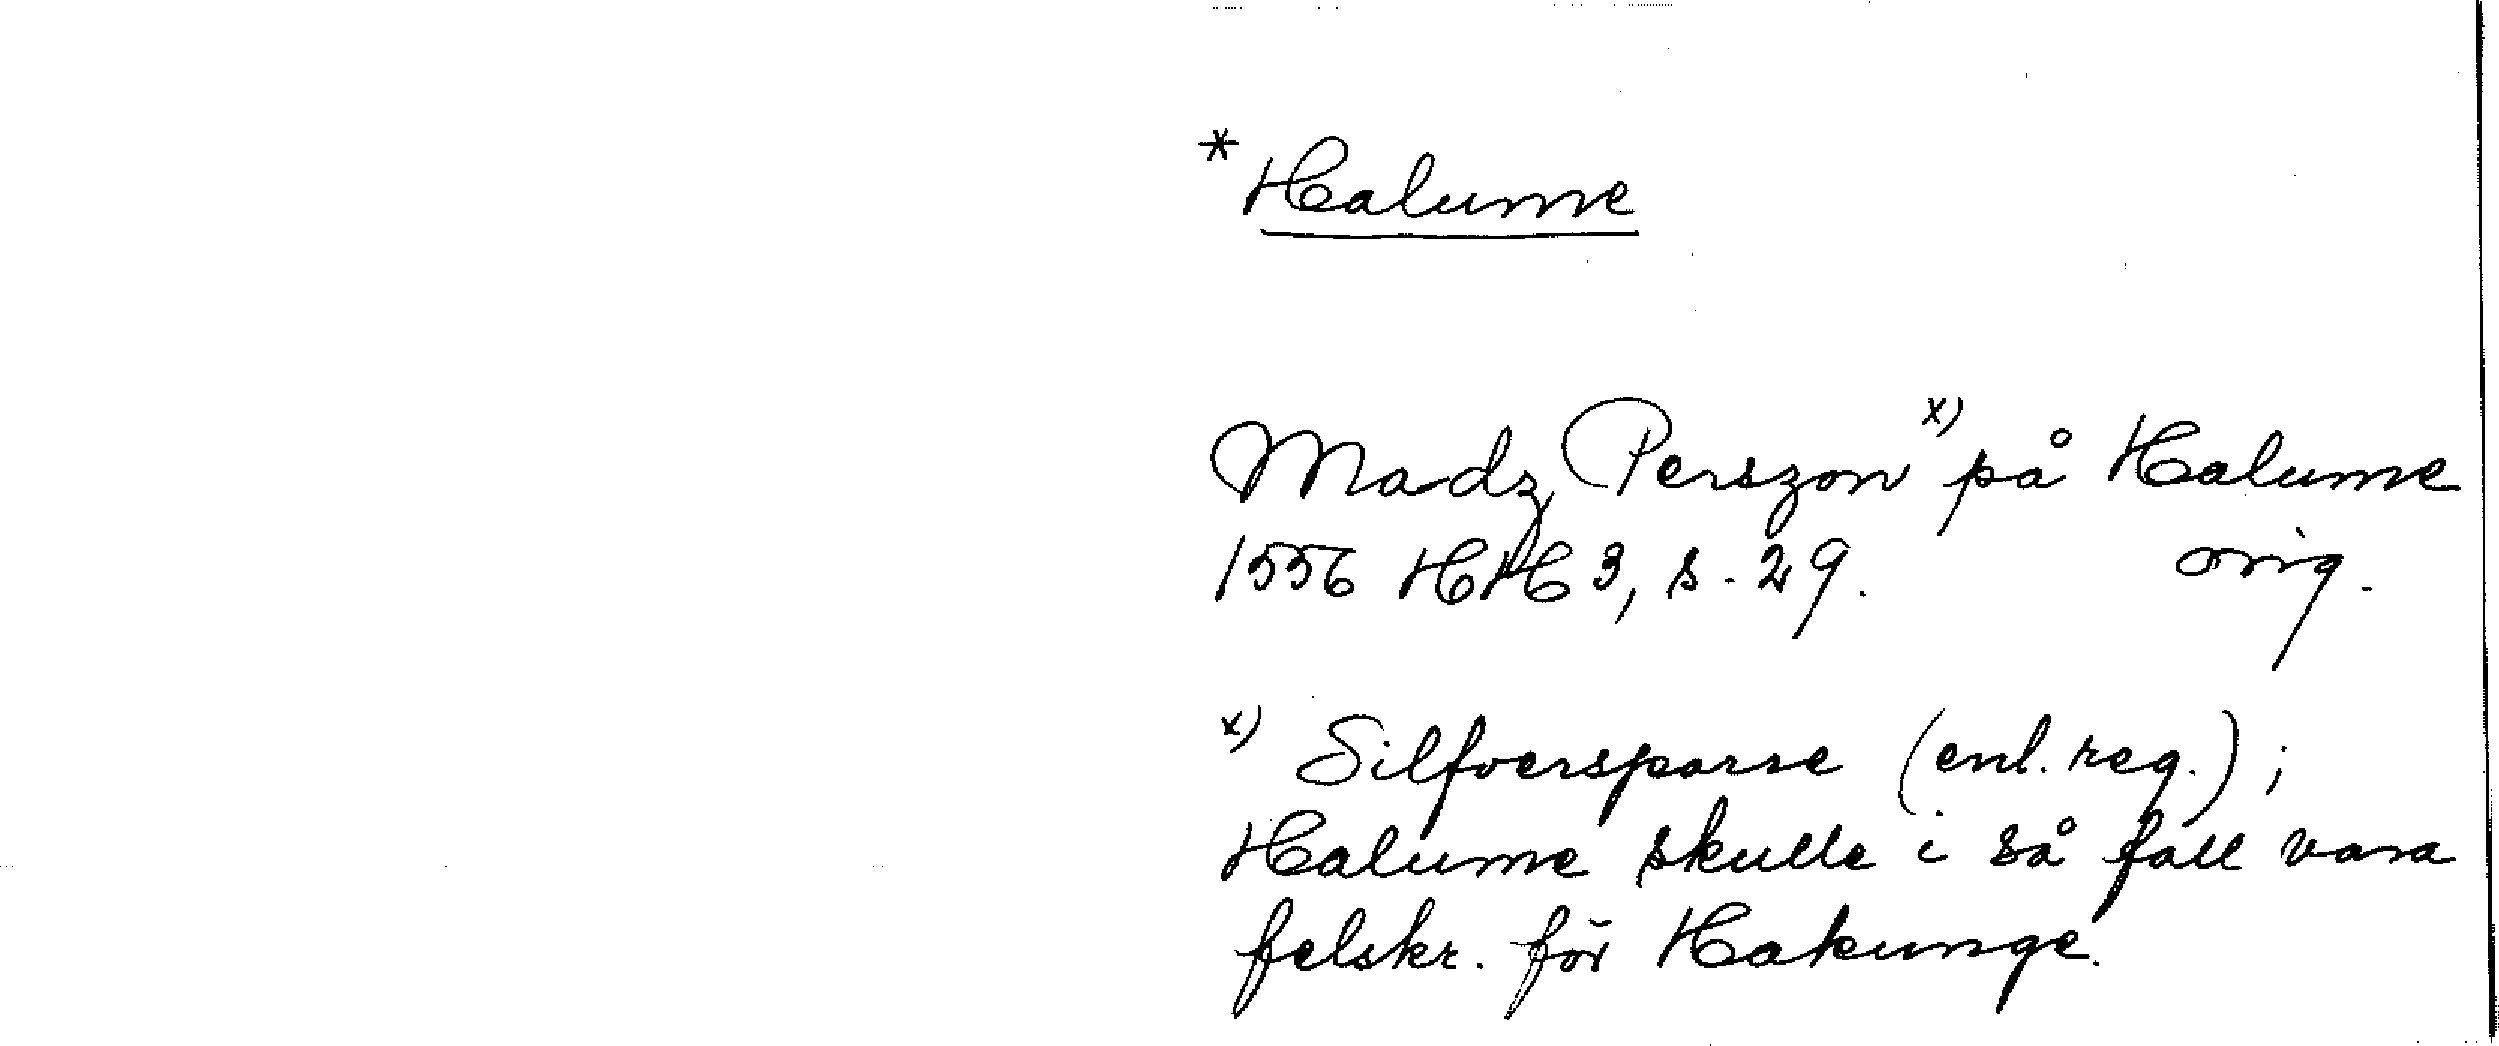 * Halume
Madz Perszon x) på Halume
1556 HH 3, s. 29. orig.
x) Silfversparre (enl. reg.);
Halume skulle i så fall vara
felskr. för Hakunge.